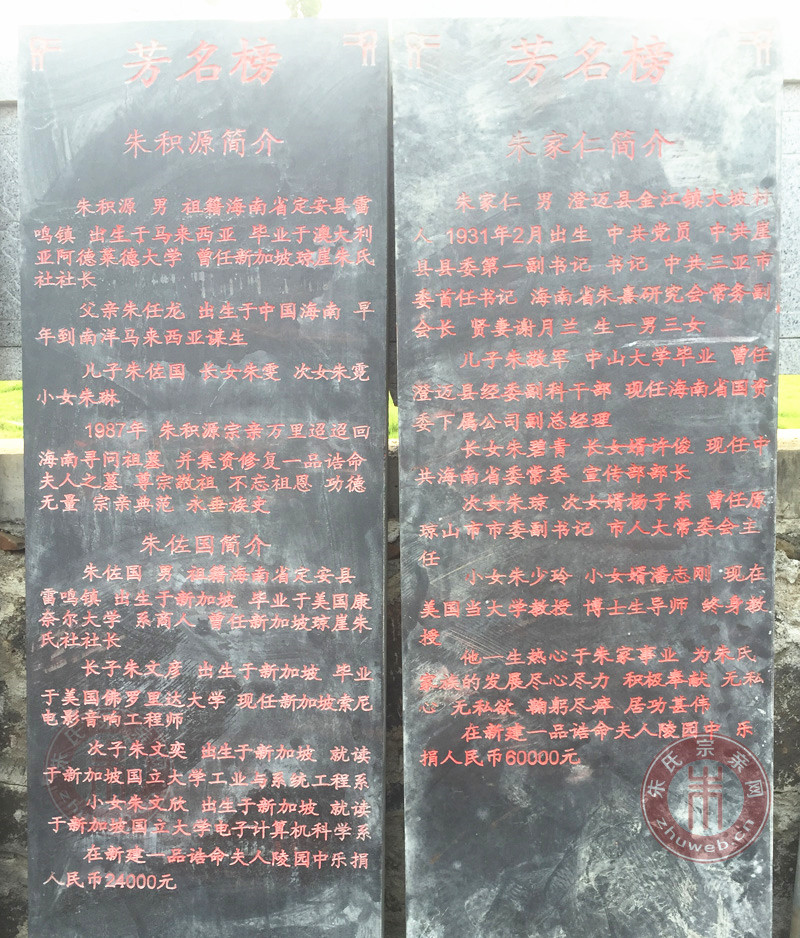 芳名榜
朱积源简介
朱积源 男 祖籍海南省定安县雷
鸣镇 出生于马来西亚 毕业于澳大利
亚阿德莱德大学 曾任新加坡琼崖朱氏
社社长
父亲朱任龙 出生于中国海南 早
年到南洋马来西亚谋生
儿子朱佐国 长女朱雯 次女朱霓
小女朱琳
1987年 朱积源宗亲万里迢迢回
海南寻问祖墓 并集资修复一品诰命
夫人之墓 尊宗敬祖 不忘祖恩 功德
无量 宗亲典范 永垂族史
朱佐国简介
朱佐国 男 祖籍海南省定安县
雷鸣镇 出生于新加坡 毕业于美国康
奈尔大学 系商人 曾任新加坡琼崖朱
氏社社长
长子朱文彦 出生于新加坡 毕业
于美国佛罗里达大学 现任新加坡索尼
电影音响工程师
次子朱文奕 出生于新加坡 就读
于新加坡国立大学工业与系统工程系
小女朱文欣 出生于新加坡 就读
于新加坡国立大学电子计算机科学系
在新建一品诰命夫人陵园中乐捐
人民币24000元
芳名榜
朱家仁简介
朱家仁 男 澄迈县金江镇大坡村
人 1931年2月出生 中共党员 中共崖
县县委第一副书记 书记 中共三亚市
委首任书记 海南省朱熹研究会常务副
会长 贤妻谢月兰 生一男三女
儿子朱敬军 中山大学毕业 曾任
澄迈县经委副科干部 现任海南省国资
委下属公司副总经理
长女朱碧青 长女婿许俊 现任中
共海南省委常委 宣传部部长
次女朱琼 次女婿杨子东 曾任原
琼山市市委副书记 市人大常委会主
任
小女朱少玲 小女婿潘志刚 现在
美国当大学教授 博士生导师 终身教
授
他一生热心于朱家事业 为朱氏
家族的发展尽心尽力 积极奉献 无私
心 无私欲 鞠躬尽瘁 居功甚伟
在新建一品诰命夫人陵园中 乐
捐人民币60000元
朱氏宗亲网
zhuweb.cn